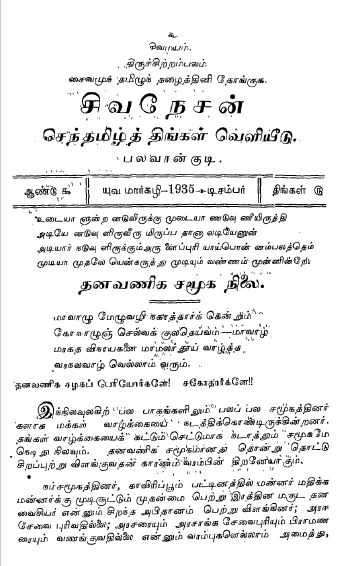 ௳
சிவமயம்.
திருச்சிற்றம்பலம்
சைவமுந் தமிழுந் தழைத்தினி தோங்குக.
சிவநேசன்
செந்தமிழ்த் திங்கள் வெளியீடு.
பலவான்குடி.
ஆண்டு ௯ யுவ மார்கழி-1935-டிசம்பர் திங்கள் ௫
உடையா ளுன்ற னடுவிருக்கு முடையா ணடுவு ணீயிருத்தி
அடியே னடுவு ளிருவீரு மிருப்ப தானா லடியேனுன்
அடியார் நடுவு ளிருக்கும்அரு ளைப்புரி யாய்பொன் னம்பலத்தெம்
முடியா முதலே யென்கருத்து முடியும் வண்ணம் முன்னின்றே.
தனவணிக சமூக நிலை.
மாவாழு மேழுவழி நகரத்தார்க் கென்றும்
கோவாழுஞ் செல்வக் குலதெய்வம்—மாவாழ்
மரகத விநாயகனை மாமலர்தூய் வாழ்த்த
வரகலவாழ் வெல்லாம் வரும்.
தனவணிக சமூகப் பெரியோர்களே! சகோதரர்களே!!
இந்நிலவுலகிற் பல பாகங்களிலும் பலப் பல சமூகத்தினர்
களாக மக்கள் வாழ்க்கையை நடத்திக்கொண்டிருக்கின்றனர்.
தங்கள் வாழ்க்கையைக் கட்டுஞ் செட்டுமாக நடாத்தும் சமூகமே
நெடிது நிலவும். தனவணிகச் சமூகமானது தொன்று தொட்டு
சிறப்புற்று விளங்குவதன் காரணம் வரம்பின் நிறனேயாகும்.
நம்சமூகத்தினர், காவிரிப்பூம் பட்டினத்தில் மன்னர் மதிக்க
மன்னர்க்கு முடிசூட்டும் முதன்மை பெற்று இரத்தின மகுட தன
வைசியர் என்னும் சிறந்த அபிதானம் பெற்று விளங்கினர்; அரச
சேவை புரிவதில்லை; அரசரையும் அரசாங்க சேவைபுரியும் பிராமண
ரையும் வணங்குவதில்லை என்னும் வரம்புகளெல்லாம் அமைத்து,